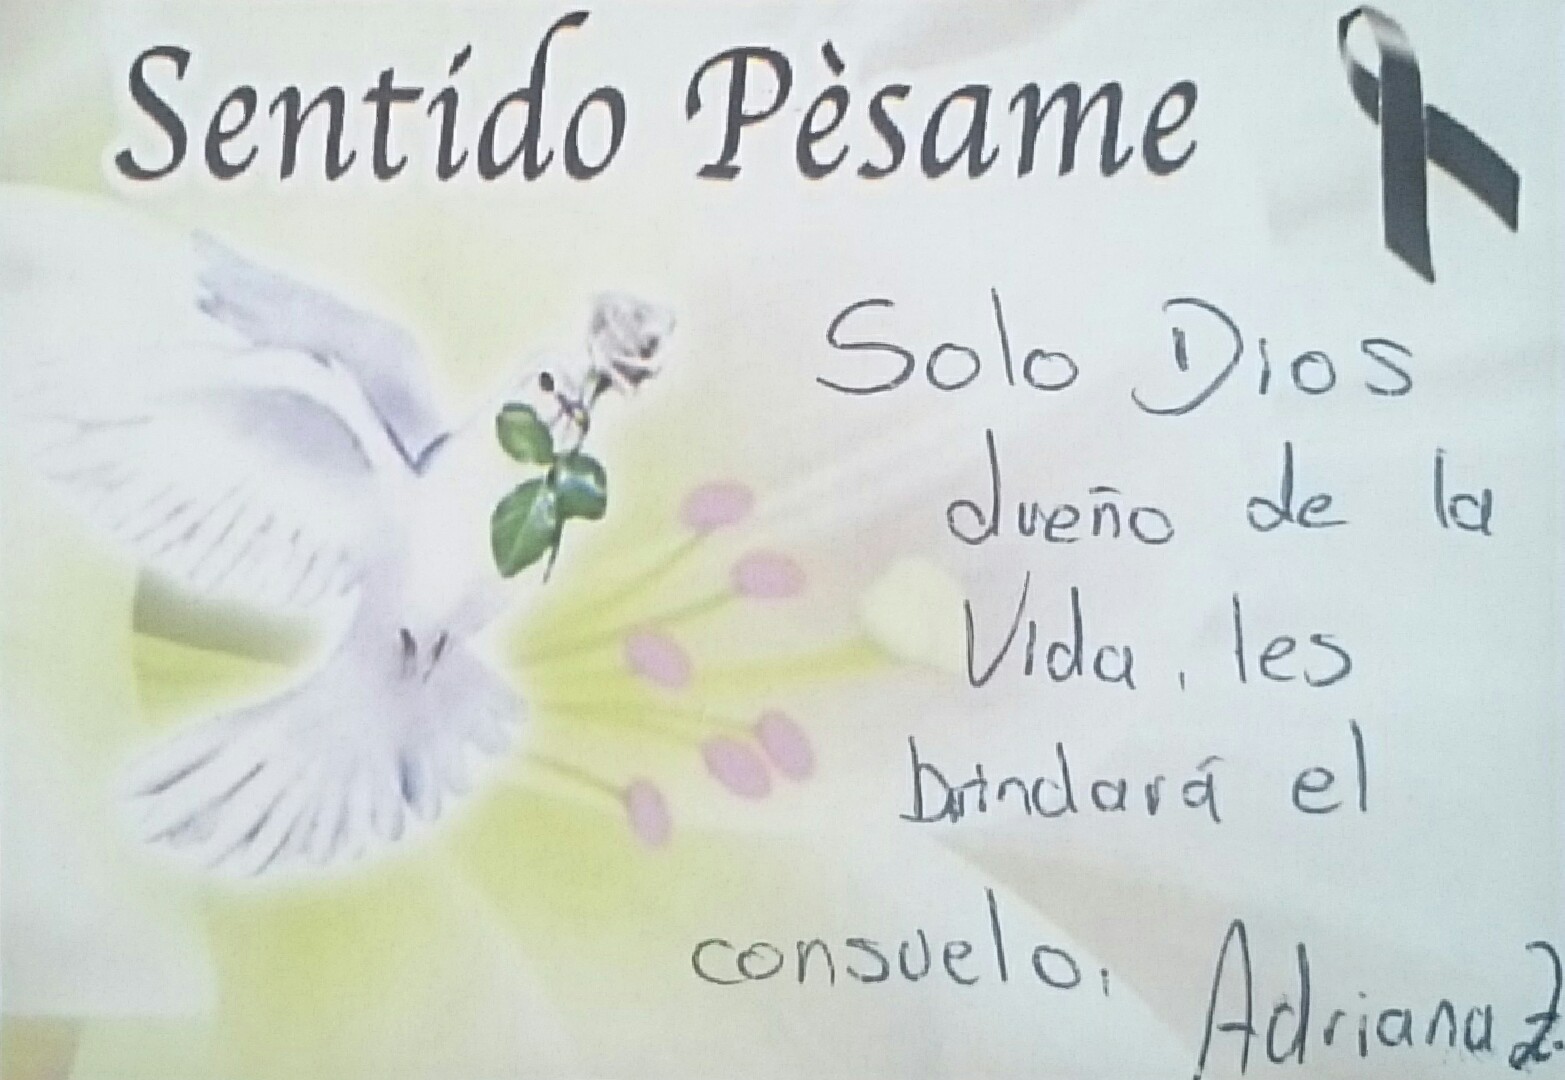 Sentido Pèsame
Solo Dios
dueño de la
Vida, les
brindará el
consuelo,
Adriana Z.